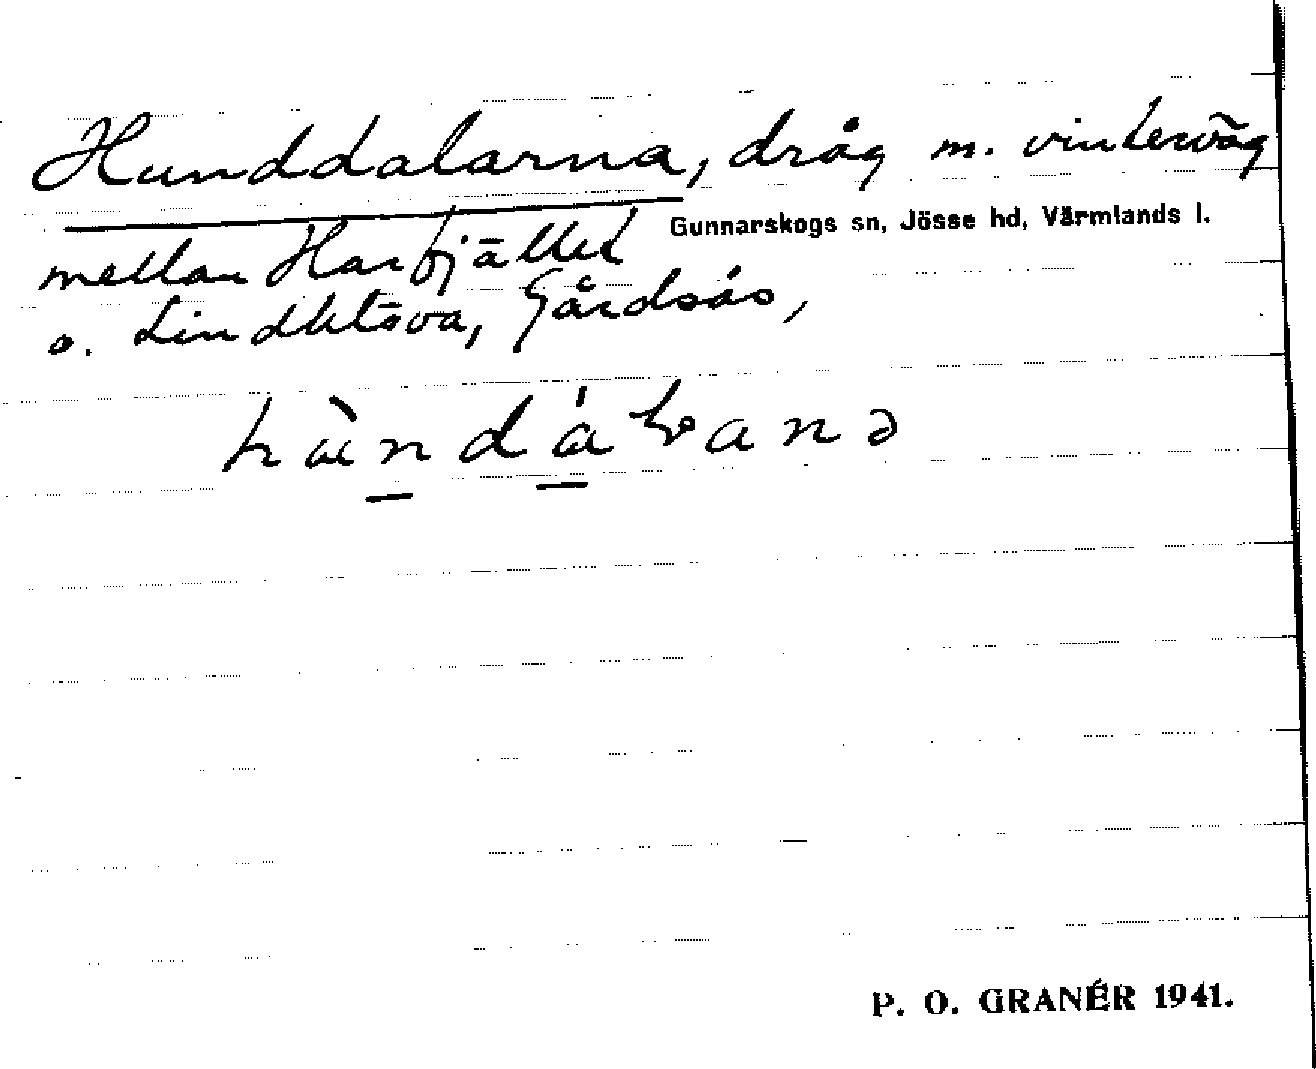 Hunddalarna, dråg m. vinterväg
Gunnarskogs sn, Jösse hd, Värmlands l.
mellan Harfjället
o. Lindklöva, Gårdsås,
P. O. GRANÉR 1941.